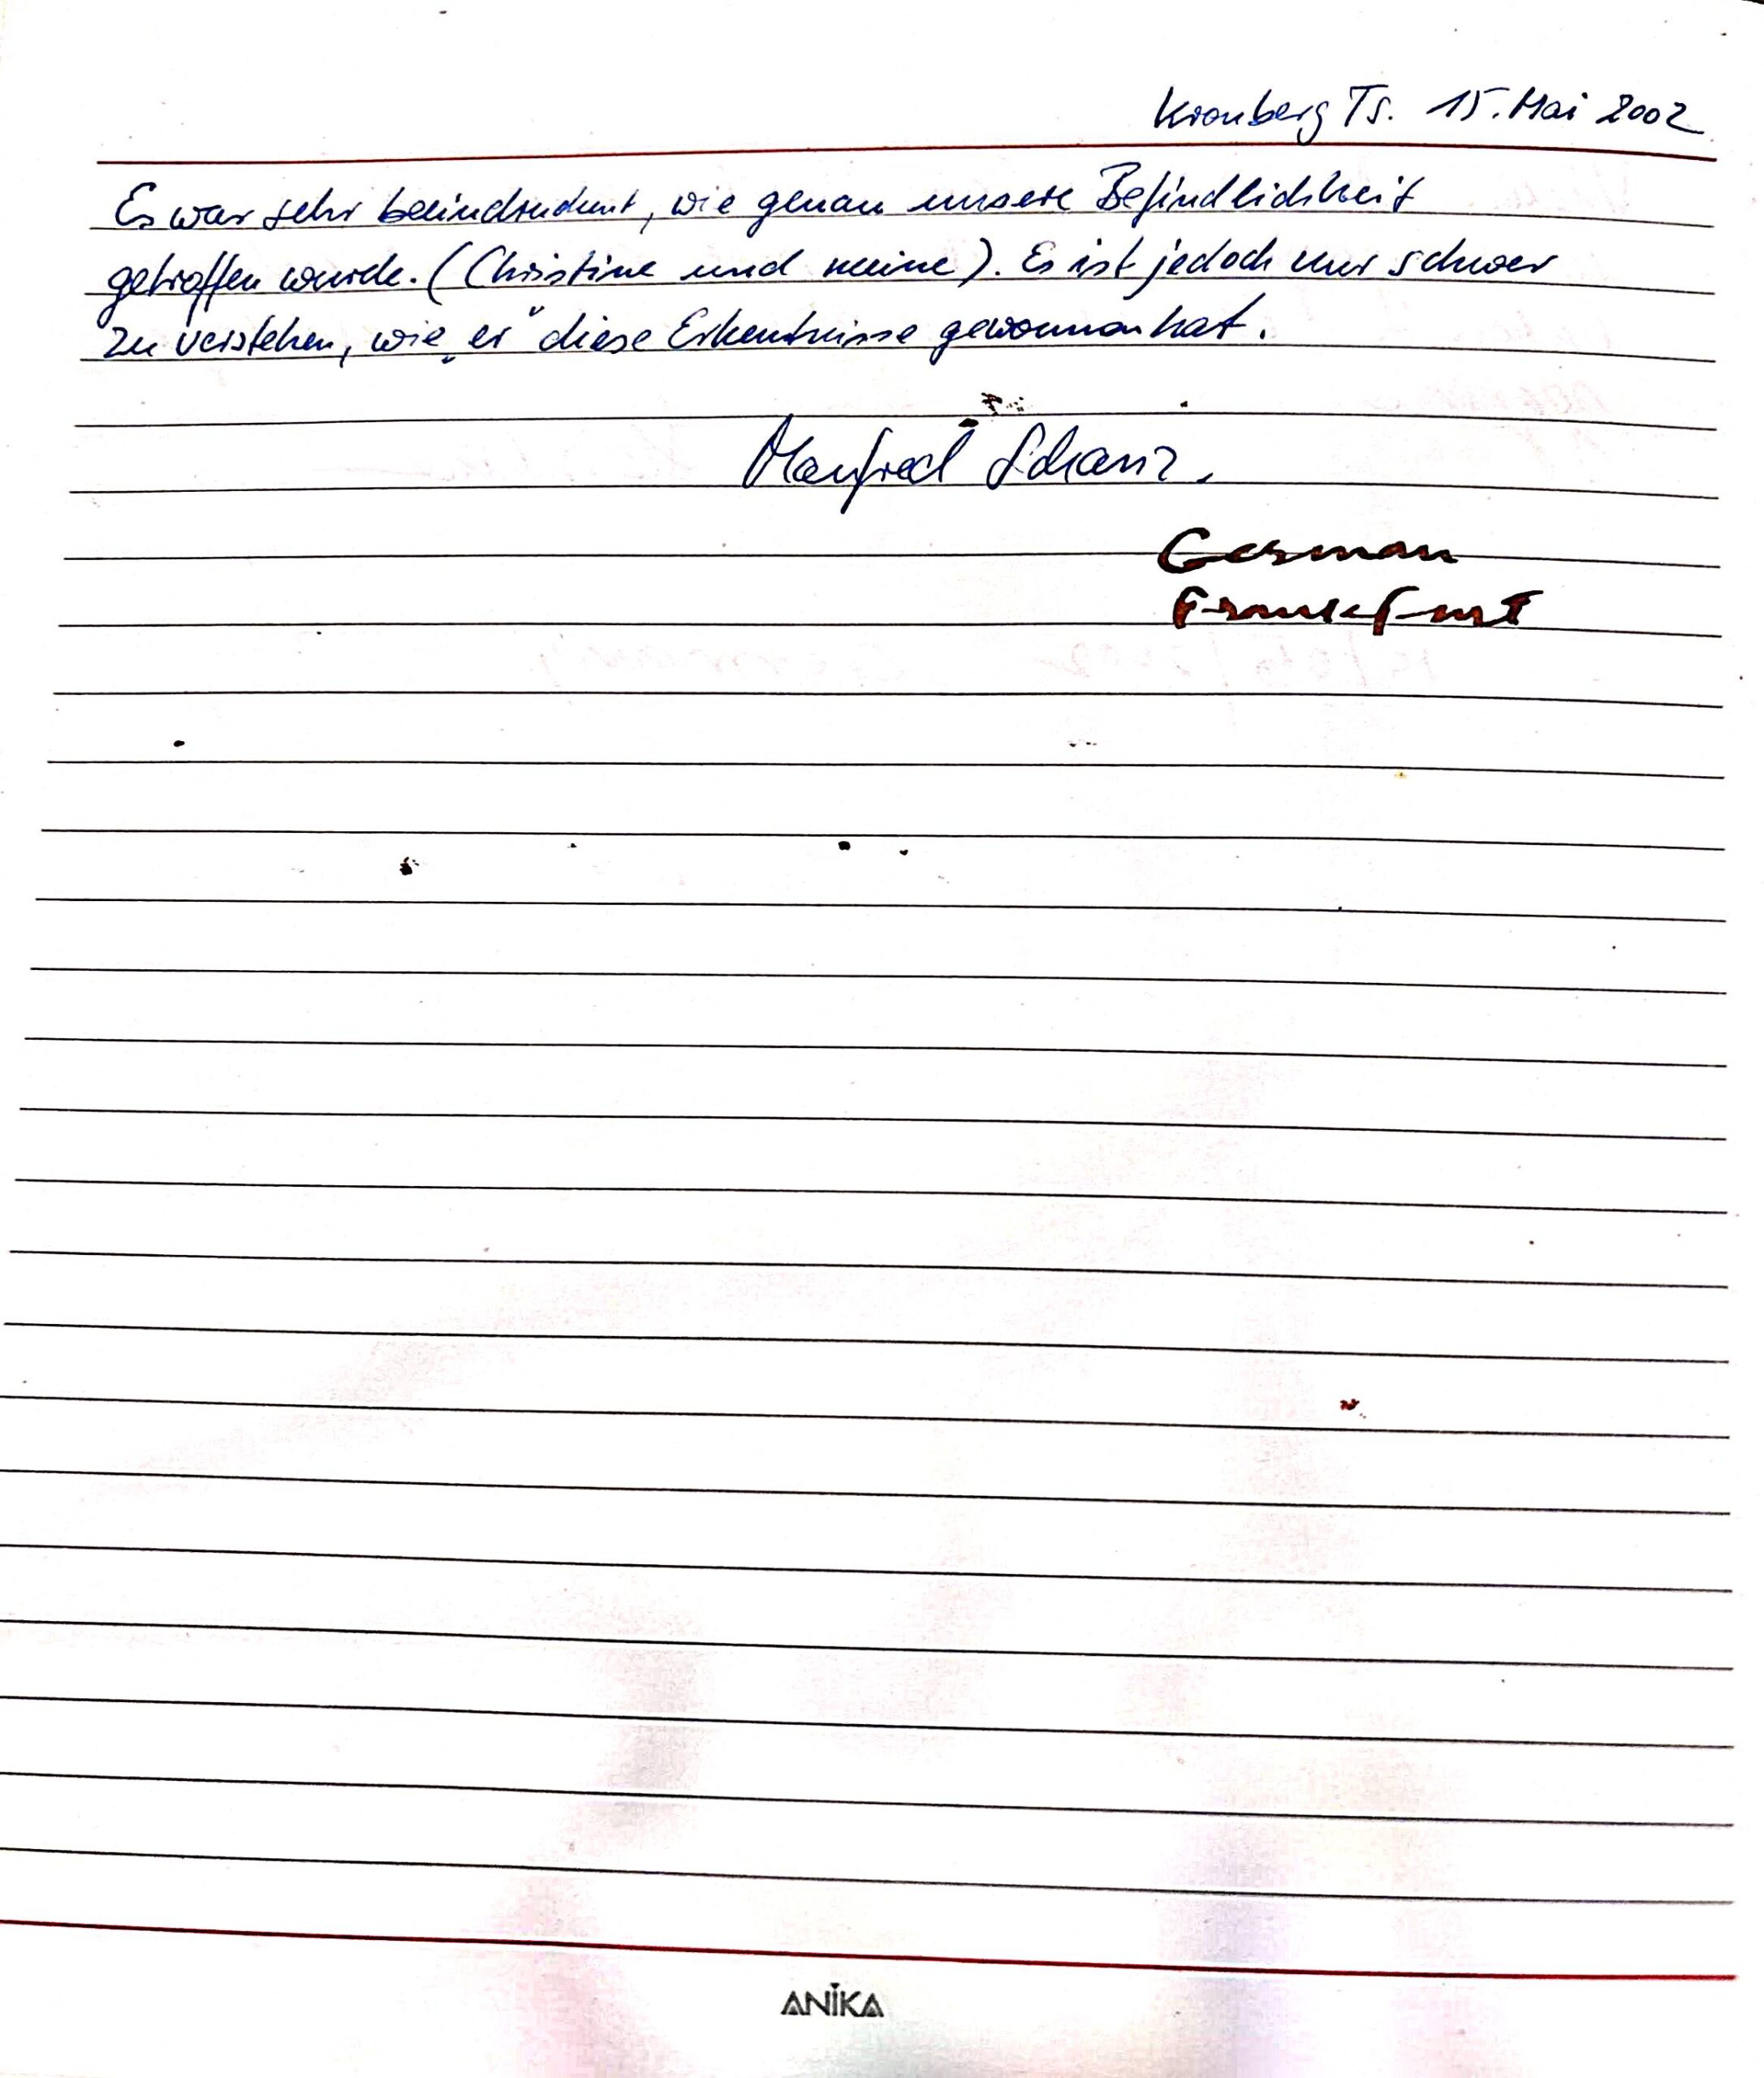 Kronberg Ts. 15. Mai 2002
Es war sehr beeindruckend, wie genau unsere Befindlichkeit
getroffen wurde. (Christine und meine). Es ist jedoch nur schwer
zu verstehen, wie „er“ diese Erkentnisse gewonnen hat.
Manfred
German
Frankfurt
ANIKA